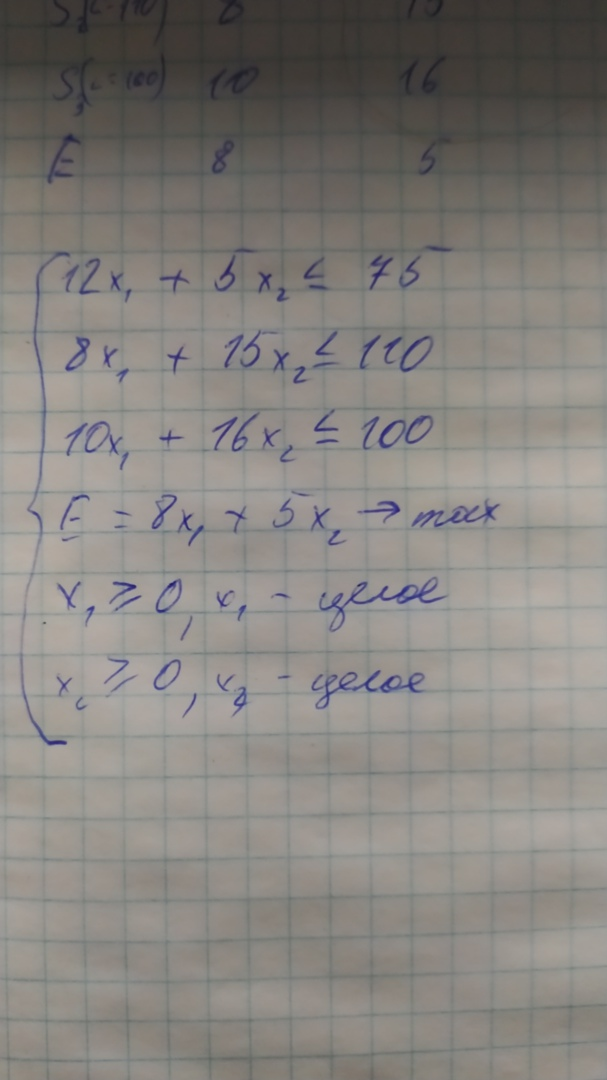 8 15
S₃ 10 16
E 8 5
12x₁ + 5x₂ ≤ 75
8x₁ + 15x₂ ≤ 110
10x₁ + 16x₂ ≤ 100
E = 8x₁ + 5x₂ → max
x₁ ≥ 0, x₁ - целое
x₂ ≥ 0, x₂ - целое